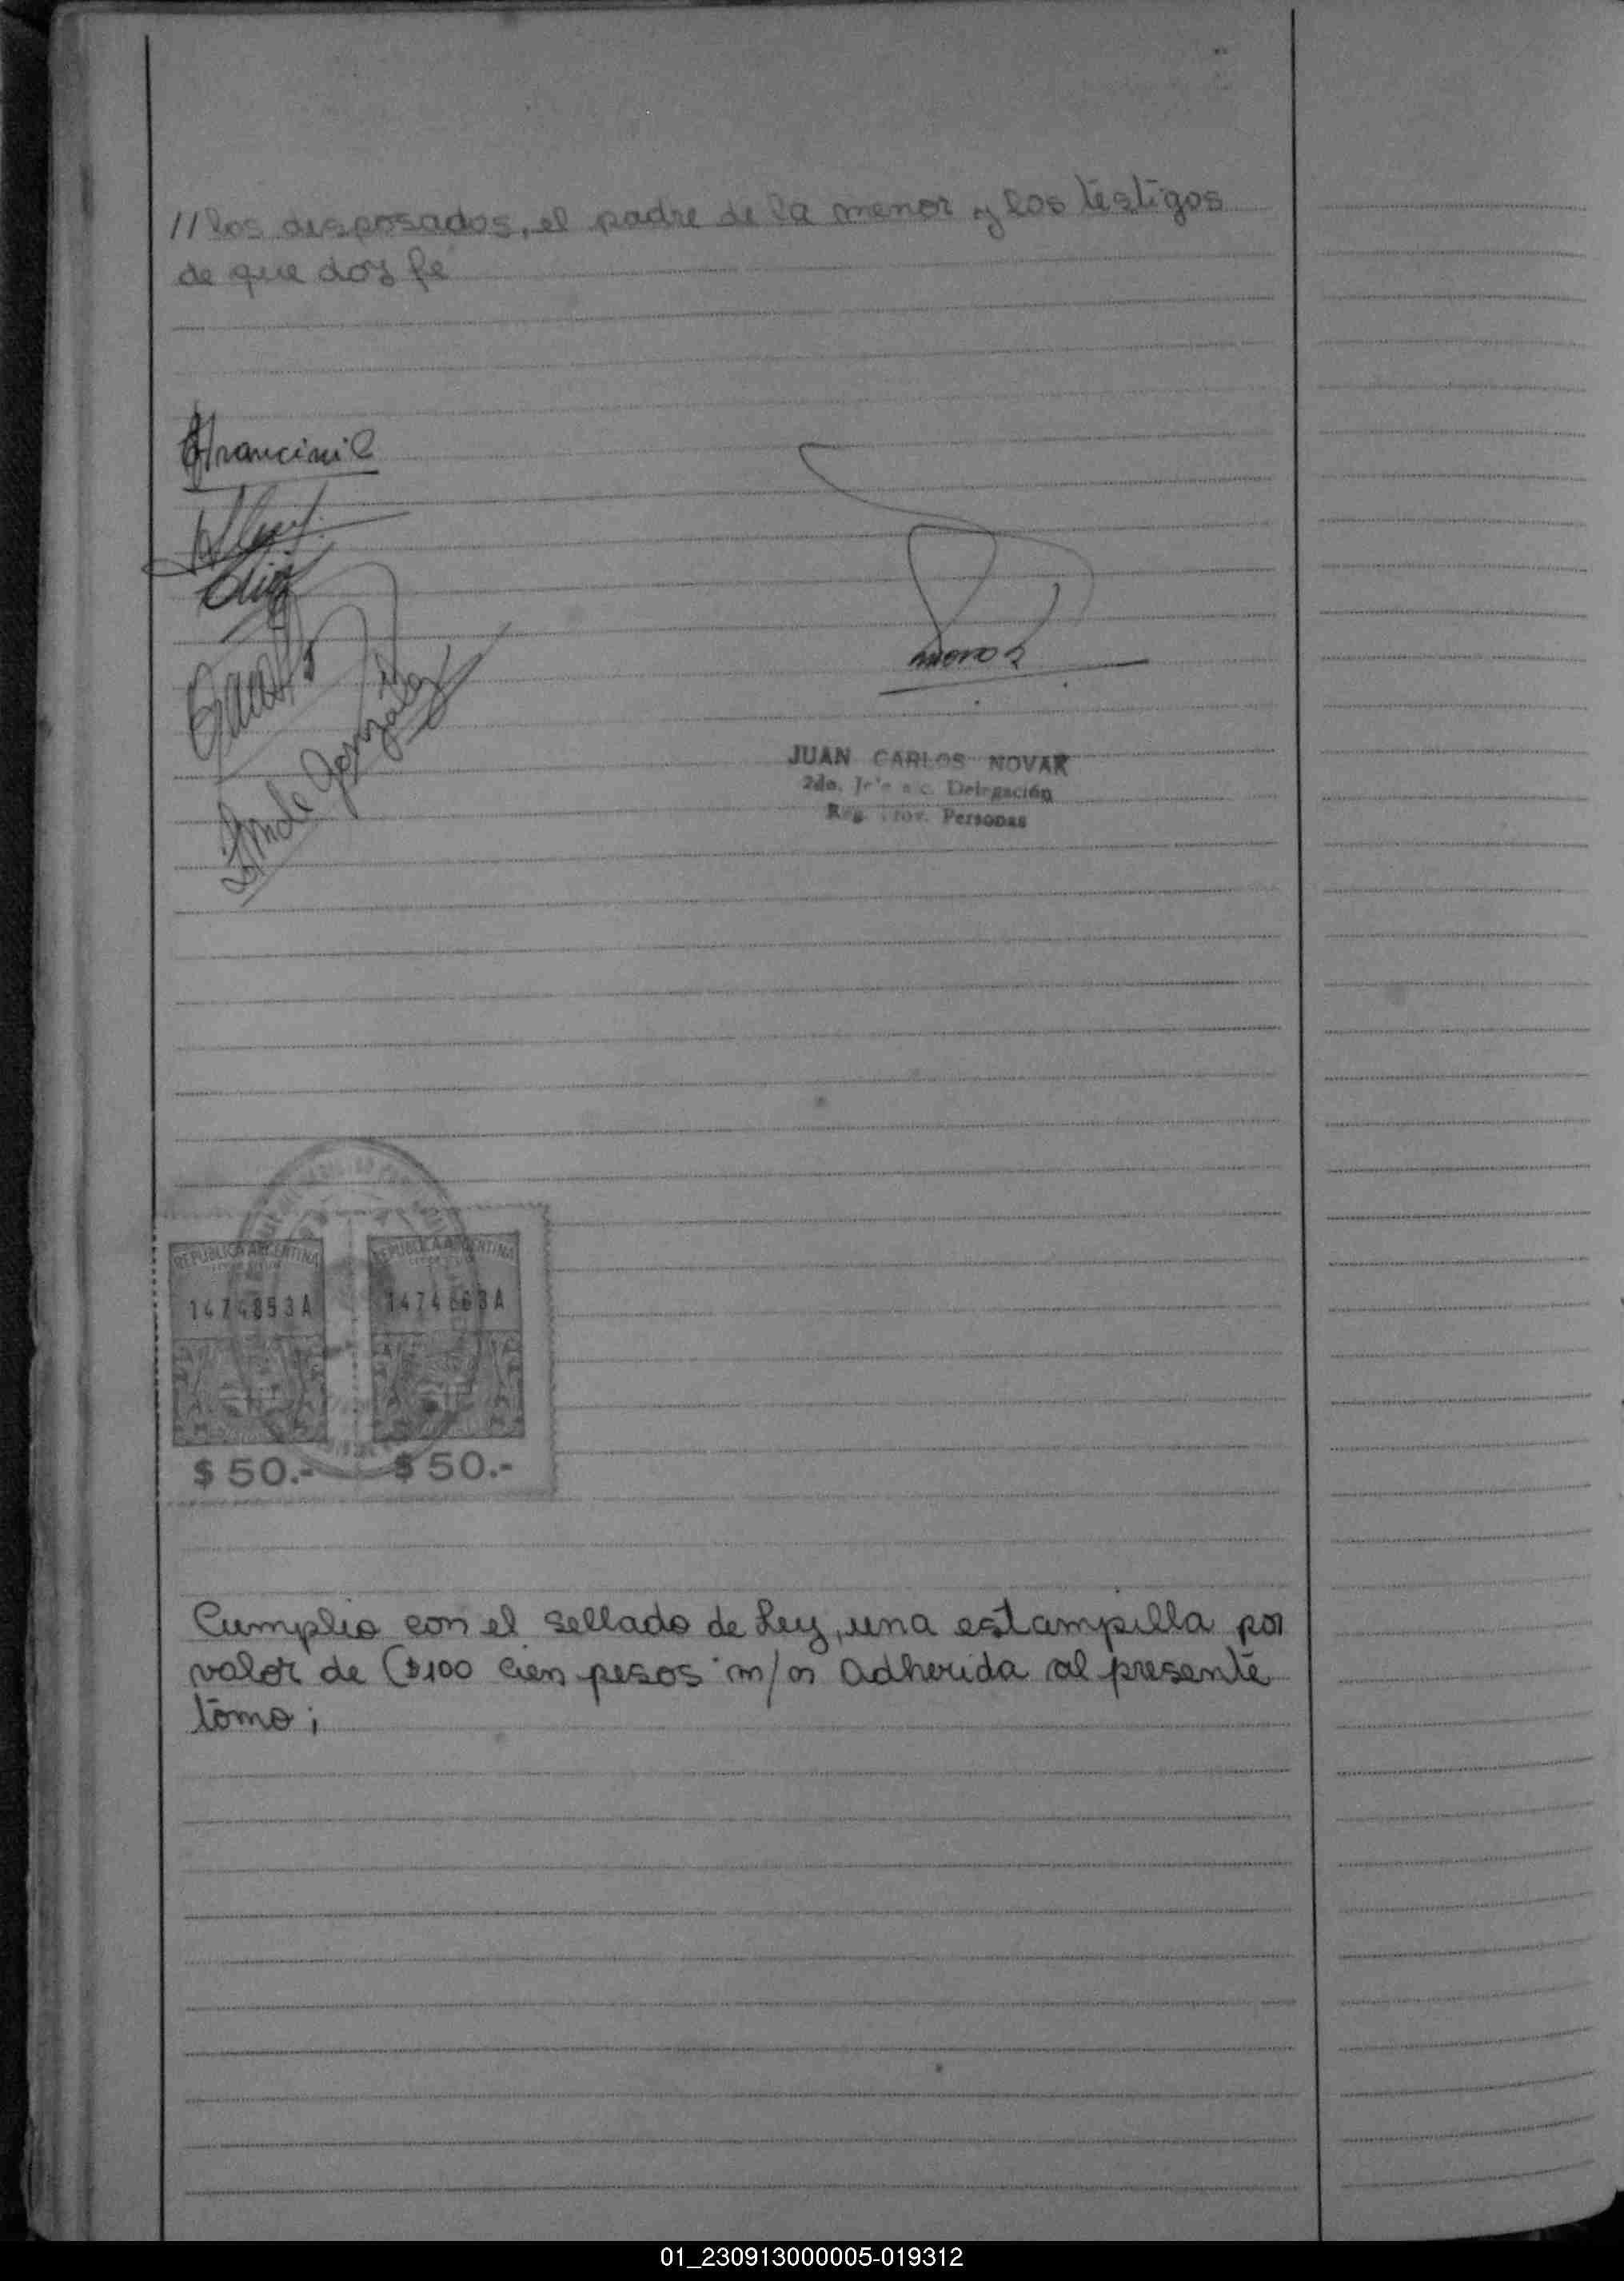 //los desposados, el padre de la menor y los testigos
de que doy fe
Francinil
Diaz
de Gonzalez
JUAN CARLOS NOVAR
2do. Jefe a/c. Delegación
Reg. Prov. Personas
REPUBLICA ARGENTINA REPUBLICA ARGENTINA
1474853A
$50.- $50.-
Cumplio con el sellado de Ley, una estampilla por
valor de ($100 cien pesos m/n adherida al presente
tomo;
01_230913000005-019312